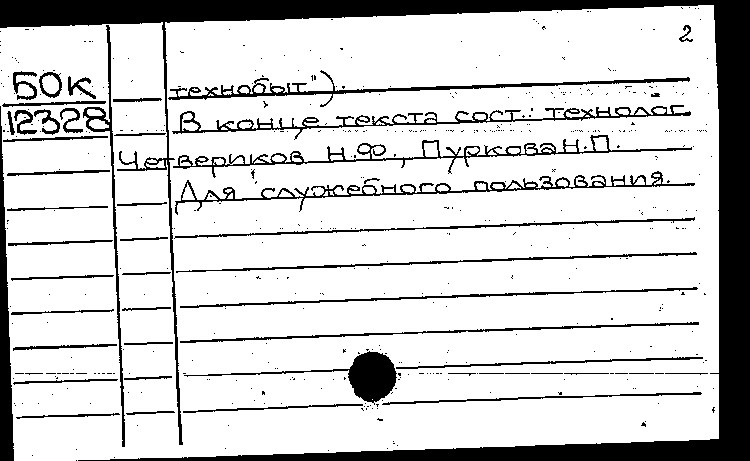 2
БОК технобыт").
12328 В конце текста сост.: технолог
Четвериков Н.Ф., Пуркова Н.П.
Для служебного пользования.